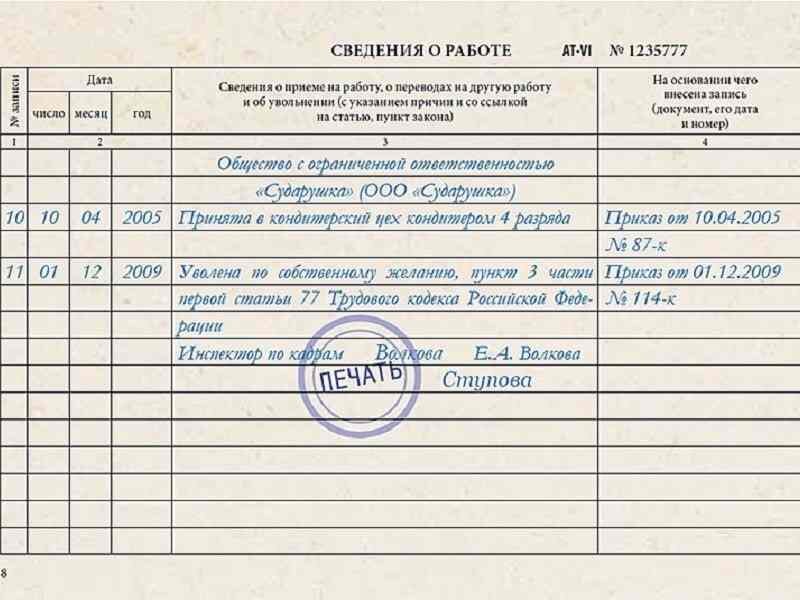 СВЕДЕНИЯ О РАБОТЕ AT-VI № 1235777
№ записи
Дата
число месяц год
Сведения о приеме на работу, о переводах на другую работу
и об увольнении (с указанием причин и со ссылкой
на статью, пункт закона)
На основании чего
внесена запись
(документ, его дата
и номер)
1 2 3 4
Общество с ограниченной ответственностью
«Сударушка» (ООО «Сударушка»)
10 10 04 2005 Принята в кондитерский цех кондитером 4 разряда Приказ от 10.04.2005
№ 87-к
11 01 12 2009 Уволена по собственному желанию, пункт 3 части Приказ от 01.12.2009
первой статьи 77 Трудового кодекса Российской Феде- № 114-к
рации
Инспектор по кадрам Волкова Е.А. Волкова
ПЕЧАТЬ Ступова
8